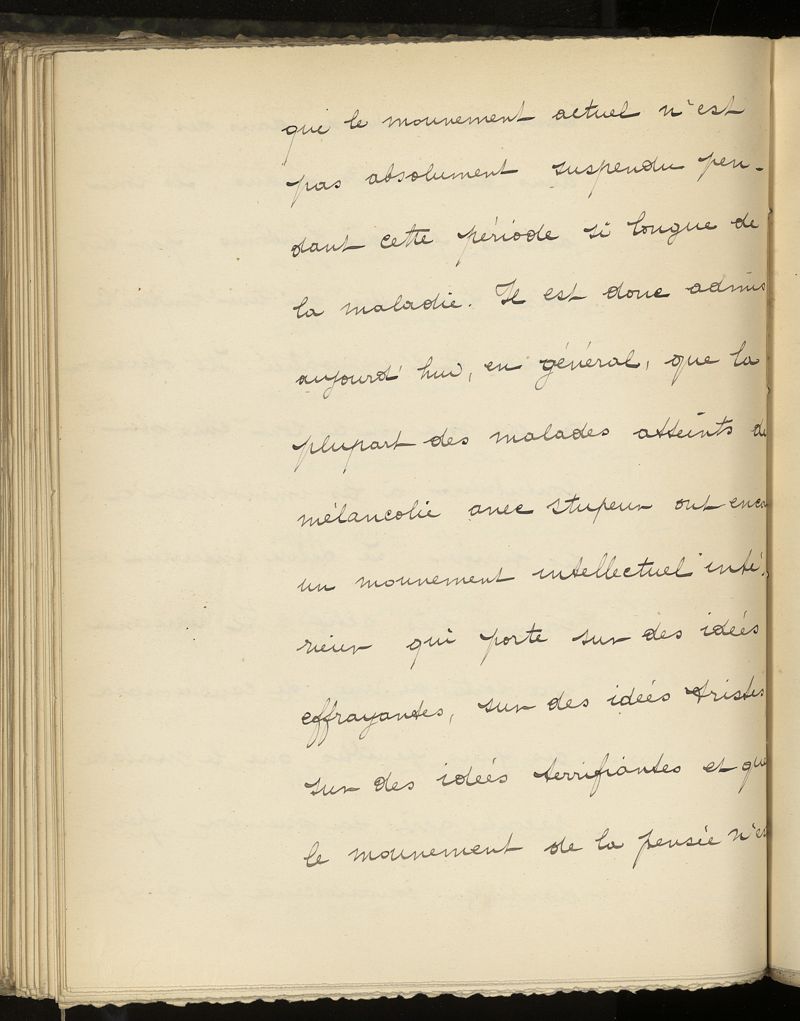 que le mouvement actuel n'est
pas absolument suspendu pen-
dant cette période si longue de
la maladie. Il est donc admis
aujourd'hui, en général, que la
plupart des malades atteints de
mélancolie avec stupeur ont enco
un mouvement intellectuel inté-
rieur qui porte sur des idées
effrayantes, sur des idées tristes
sur des idées terrifiantes et que
le mouvement de la pensée n'es